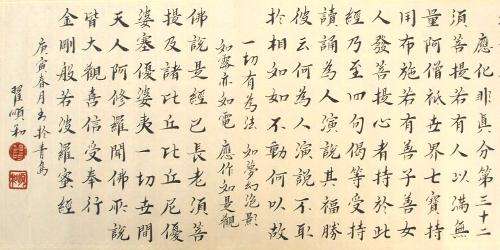 應化非真分第三十二
須菩提若有人以滿無
量阿僧祇世界七寶持
用布施若有善子善女
人發菩提心者持於此
經乃至四句偈等受持
讀誦為人演說其福勝
彼云何為人演說不取
於相如如不動何以故
一切有為法 如夢幻泡影
如露亦如電 應作如是觀
佛說是經已長老須菩
提及諸比丘比丘尼優
婆塞優婆夷一切世間
天人阿修羅聞佛所說
皆大觀喜信受奉行
金剛般若波羅蜜經
庚寅春月書於青島
翟順和